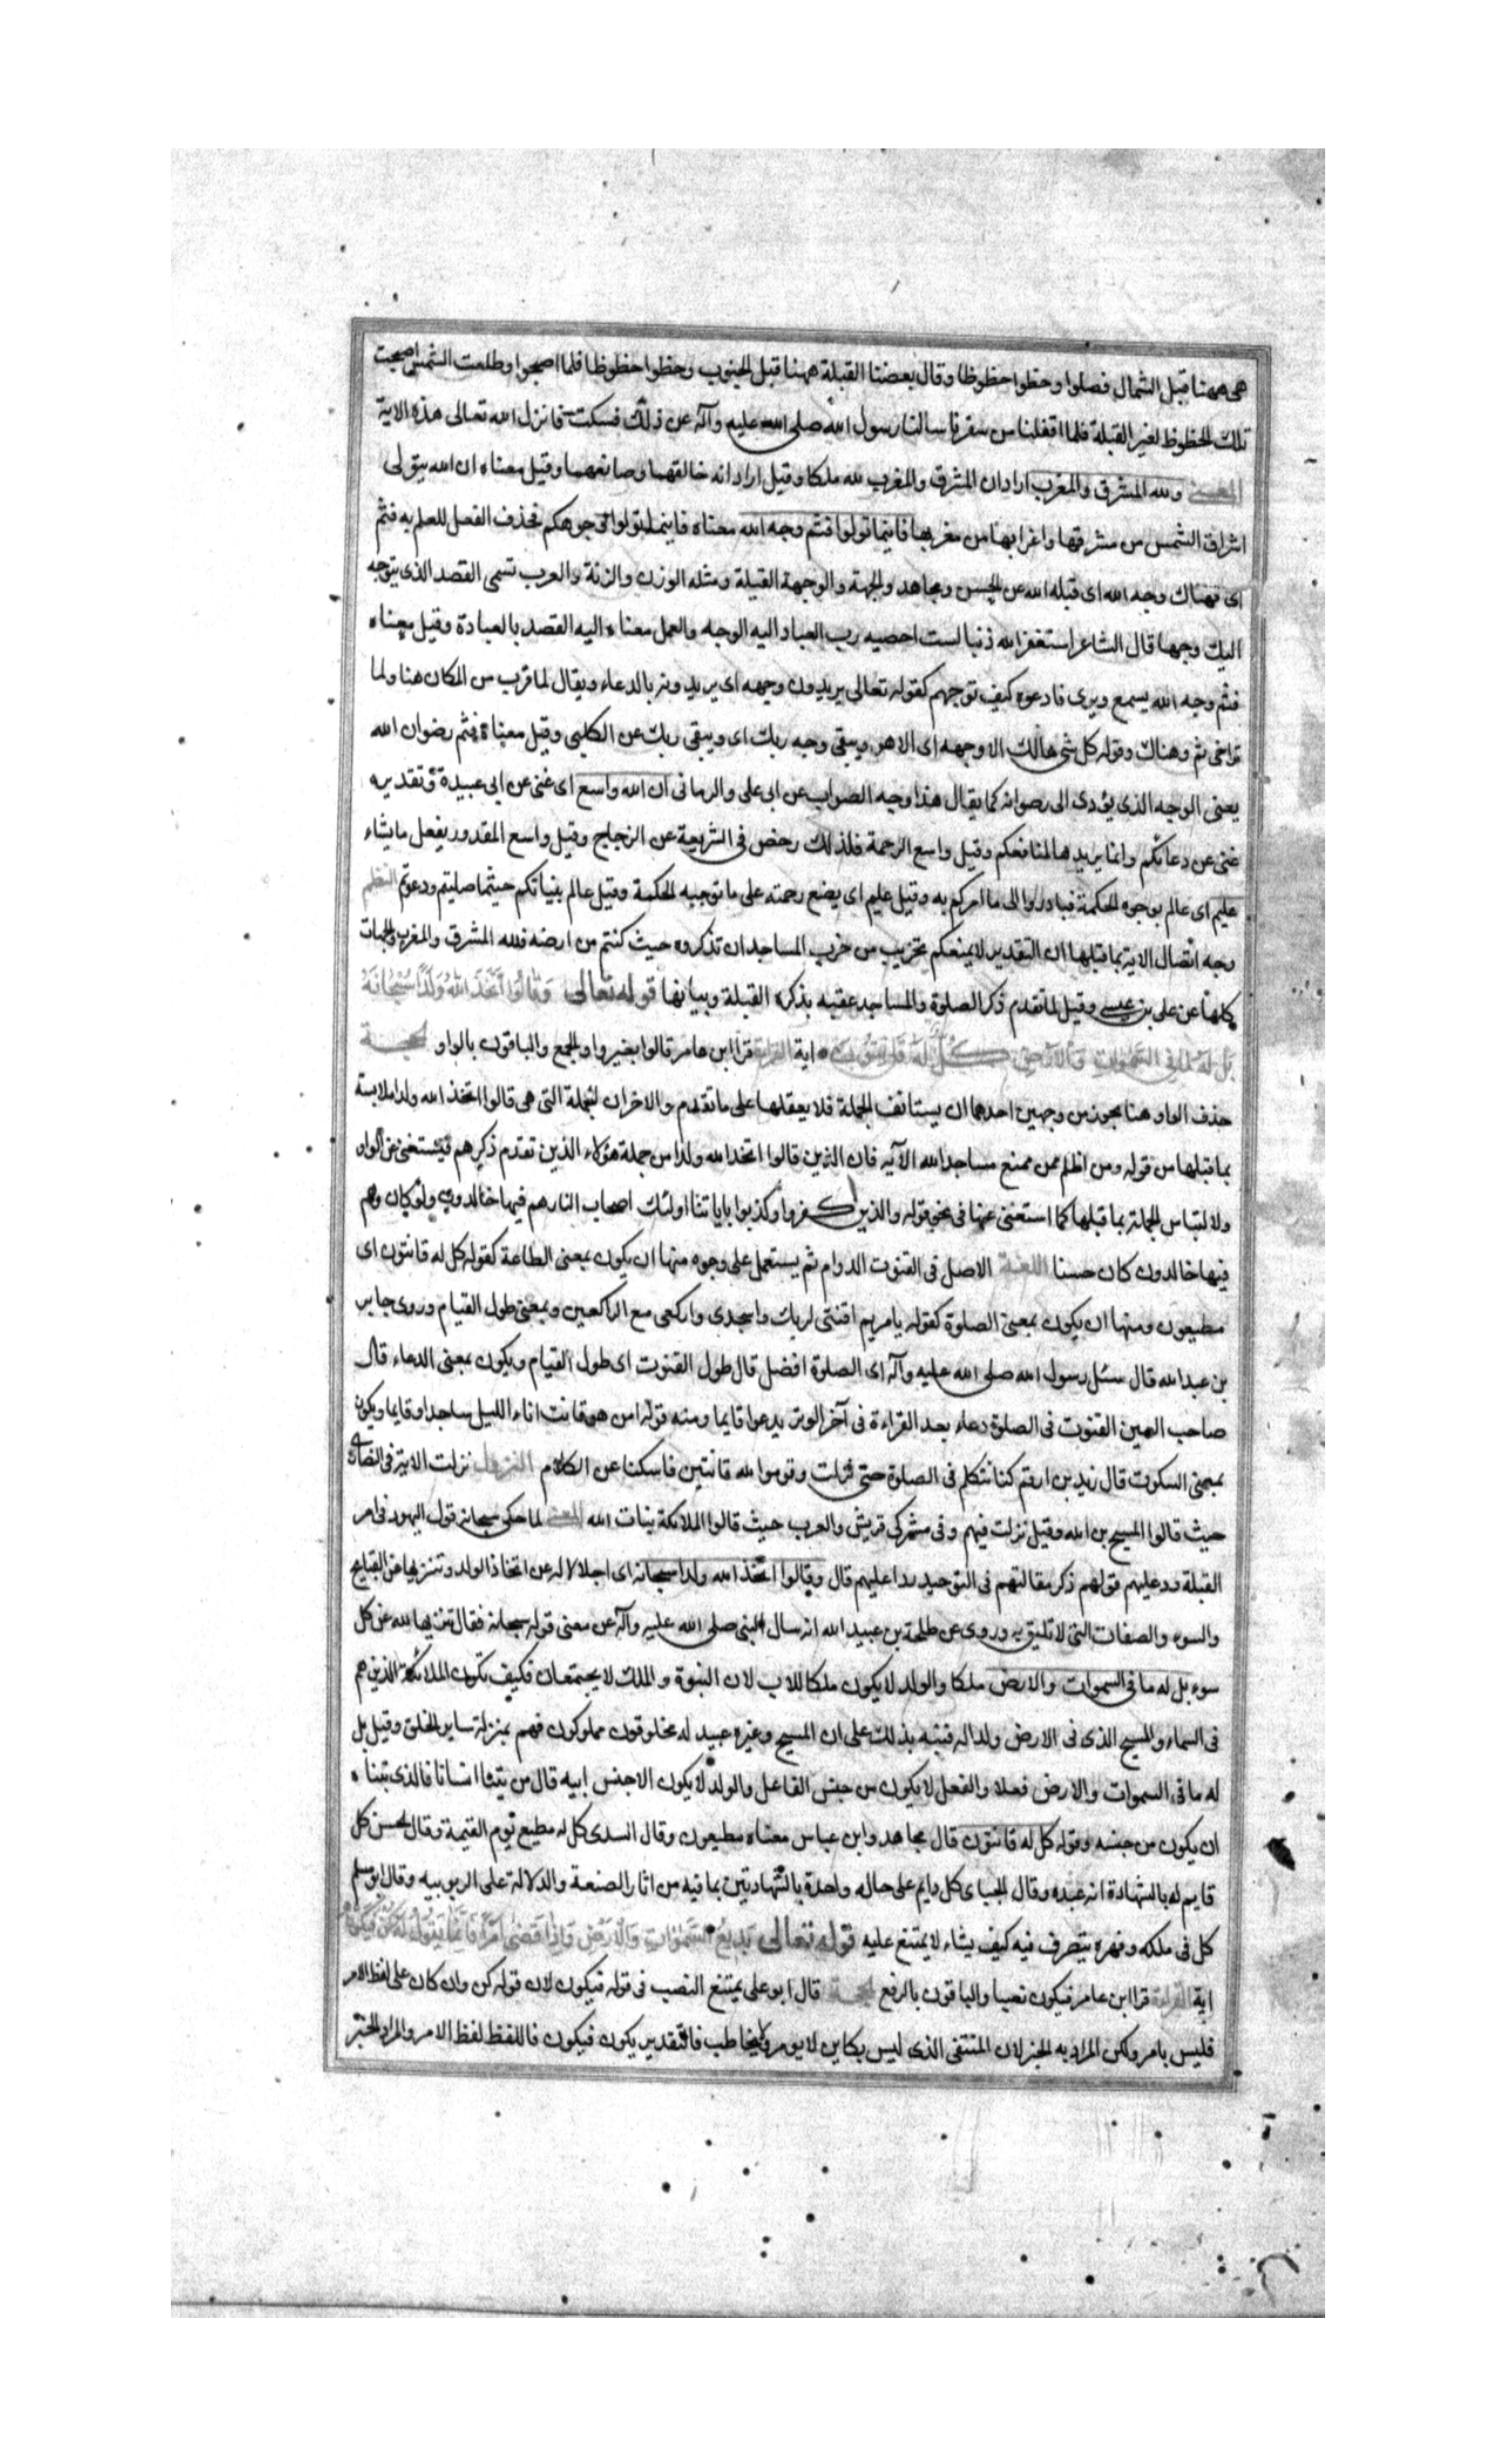 هی ههنا قبل الشمال فصلوا وخطوا خطوطا وقال بعضنا القبلة ههنا قبل الجنوب وخطوا خطوطا فلما اصبحوا وطلعت الشمس اصبحت
تلك الخطوط لغیر القبلة فلما اقفلنا من سفرنا سالنا رسول الله صلی الله علیه وآله عن ذلک فسکت فانزل الله تعالی هذه الایة
المعنی ولله المشرق والمغرب اراد ان المشرق والمغرب لله ملکا وقیل اراد انه خالقهما وصانعهما وقیل معناه ان الله یتولی
اشراق الشمس من مشرقها واغرابها من مغربها فاینما تولوا فثم وجه الله معناه فاینما تولوا وجوهکم فحذف الفعل للعلم به فثم
ای فهناک وجه الله ای قبله الله عن الحسن ومجاهد والجهة والوجهة القبلة ومثله الوزن والزنة والعرب تسمی القصد الذی یتوجه
الیک وجها قال الشاعر استغفر الله ذنبا لست احصیه رب العباد الیه الوجه والعمل معناه الیه القصد بالعبادة وقیل معناه
فثم وجه الله یسمع ویری فادعوه کیف توجهم کقوله تعالی یریدون وجهه ای یریدونه بالدعاء ویقال لما قرب من المکان هنا ولما
تراخی ثم وهناک وقوله کل شی هالک الا وجهه ای الا هو ویبقی وجه ربک ای ویبقی ربک عن الکلبی وقیل معناه فثم رضوان الله
یعنی الوجه الذی یؤدی الی رضوانه کما یقال هذا وجه الصواب عن ابی علی والرمانی ان الله واسع ای غنی عن ابی عبیدة وتقدیره
غنی عن دعائکم وانما یریدها لمنافعکم وقیل واسع الرحمة فلذلک رخص فی الشریعة عن الزجاج وقیل واسع المقدور یفعل ما یشاء
علیم ای عالم بوجوه الحکمة فبادروا الی ما امرکم به وقیل علیم ای یضع رحمته علی ما توجبه الحکمة وقیل عالم بنیاتکم حیثما صلیتم ودعوتم النظم
وجه اتصال الایة بما قبلها ان التقدیر لا یمنعکم تخریب من خرب المساجد ان تذکروه حیث کنتم من ارضه فلله المشرق والمغرب والجهات
کلها عن علی بن عیسی وقیل لما تقدم ذکر الصلوة والمساجد عقبه بذکره القبلة وبیانها قوله تعالی وَقَالُوا اتَّخَذَ اللَّهُ وَلَدًا سُبْحَانَهُ
بَل لَهُ مَا فِی السَّمٰوَاتِ وَالْاَرْضِ کُلٌّ لَهُ قَانِتُونَ ایة القراءة قرا ابن عامر قالوا بغیر واو الجمع والباقون بالواو الحجة
حذف الواو هنا یجوز من وجهین احدهما ان یستانف الجملة فلا یعقلها علی ما تقدم والاخر ان الجملة التی هی قالوا اتخذ الله ولدا ملابسة
بما قبلها من قوله ومن اظلم ممن منع مساجد الله الآیه فان الذین قالوا اتخذ الله ولدا من جملة هؤلاء الذین تقدم ذکرهم فیستغنی عن الواو
ولالتباس الجملة بما قبلها کما استغنی عنها فی نحو قوله والذین کفروا وکذبوا بایاتنا اولئک اصحاب النار هم فیها خالدون ولو کان وهم
فیها خالدون کان حسنا اللغة الاصل فی القنوت الدوام ثم یستعمل علی وجوه منها ان یکون بمعنی الطاعة کقوله کل له قانتون ای
مطیعون ومنها ان یکون بمعنی الصلوة کقوله یا مریم اقنتی لربک واسجدی وارکعی مع الراکعین وبمعنی طول القیام وروی جابر
بن عبدالله قال سئل رسول الله صلی الله علیه وآله ای الصلوة افضل قال طول القنوت ای طول القیام ویکون بمعنی الدعاء قال
صاحب العین القنوت فی الصلوة دعاء بعد القراءة فی آخر الوتر یدعوا قایما ومنه قوله امن هو قانت اناء اللیل ساجدا وقایما ویکون
بمعنی السکوت قال زید بن ارقم کنا نتکلم فی الصلوة حتی نزلت وقوموا لله قانتین فامسکنا عن الکلام النزول نزلت الایة فی النصاری
حیث قالوا المسیح بن الله وقیل نزلت فیهم وفی مشرکی قریش والعرب حیث قالوا الملائکة بنات الله المعنی لما حکی سبحانه قول الیهود فی امر
القبلة ورد علیهم قولهم ذکر مقالتهم فی التوحید ردا علیهم قال وقالوا اتخذ الله ولدا سبحانه ای اجلالا له عن اتخاذ الولد وتنزیها عن القبایح
والسوء والصفات التی لا تلیق به وروی عن طلحة بن عبید الله انه سال النبی صلی الله علیه وآله عن معنی قوله سبحانه فقال تنزیها لله عن کل
سوء بل له ما فی السموات والارض ملکا والولد لا یکون ملکا للاب لان البنوة والملک لا یجتمعان فکیف تکون الملائکة الذین هم
فی السماء والمسیح الذی فی الارض ولدا له فنبه بذلک علی ان المسیح وغیره عبید له مخلوقون مملوکون فهم بمنزلة سایر الخلق وقیل بل
له ما فی السموات والارض فعلا والفعل لا یکون من جنس الفاعل والولد لا یکون الا جنس ابیه قال من یتبنا انسانا فالذی تبناه
ان یکون من جنسه وقوله کل له قانتون قال مجاهد وابن عباس معناه مطیعون وقال السدی کل له مطیع یوم القیمة وقال الحسن کل
قایم له بالشهادة انه عبده وقال الجبای کل دایم علی حاله واحدة بالشهادتین بما فیه من اثار الصنعة والدلالة علی الربوبیه وقال ابو مسلم
کل فی ملکه وقهره یتصرف فیه کیف یشاء لا یمتنع علیه قوله تعالی بَدِیعُ السَّمٰوَاتِ وَالْاَرْضِ وَاِذَا قَضٰی اَمْرًا فَاِنَّمَا یَقُولُ لَهُ کُنْ فَیَکُونُ
ایة القراءة قرا ابن عامر فیکون نصبا والباقون بالرفع الحجة قال ابو علی یمتنع النصب فی قوله فیکون لان قوله کن وان کان علی لفظ الامر
فلیس بامر ولکن المراد به الخبر لان المنتفی الذی لیس بکاین لا یومر ولا یخاطب فالتقدیر یکون فیکون فاللفظ لفظ الامر والمراد الخبر